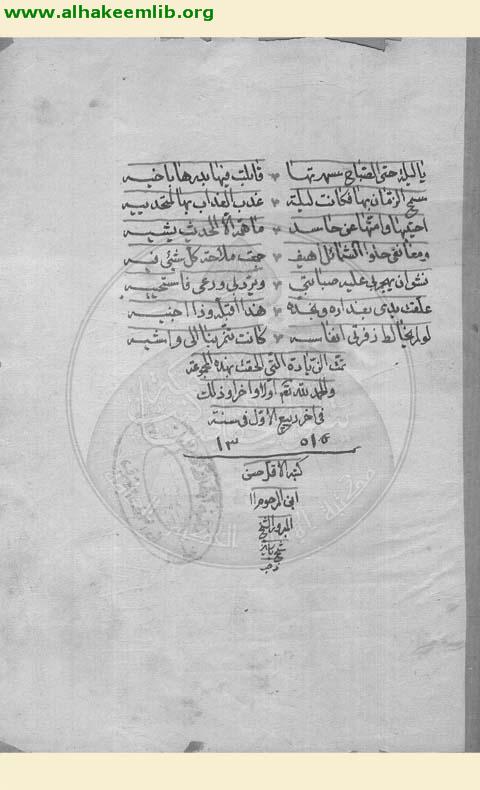 www.alhakeemlib.org
يا ليلة حتى الصباح سهرتها قابلت فيها بدرها باخيه
سمح الزمان بها فكانت ليلة عذب العذاب بها
احييتها وامتها عن حاسد ما همه الا الحديث يشيه
ومعانقي حلو الشمائل اهيف جمعت ملاحة كل شئ فيه
نشوان يهجم بي عليه صبابتي ويردني ورعي فاستحييه
علقت يدي بعذاره وبخده هذا اقبله وذا اجنيه
لو لم يخالط زفرتي انفاسه كانت تنم بنا الى واشيه
تمت الزيادة التي الحقت بهذه المجموعة
والحمد لله تعم اولا واخرا وذلك
في اخر ربيع الاول في سنة
١٣١٥
كتبه الاقل حسن
ابن المرحوم
المبرور الشيخ